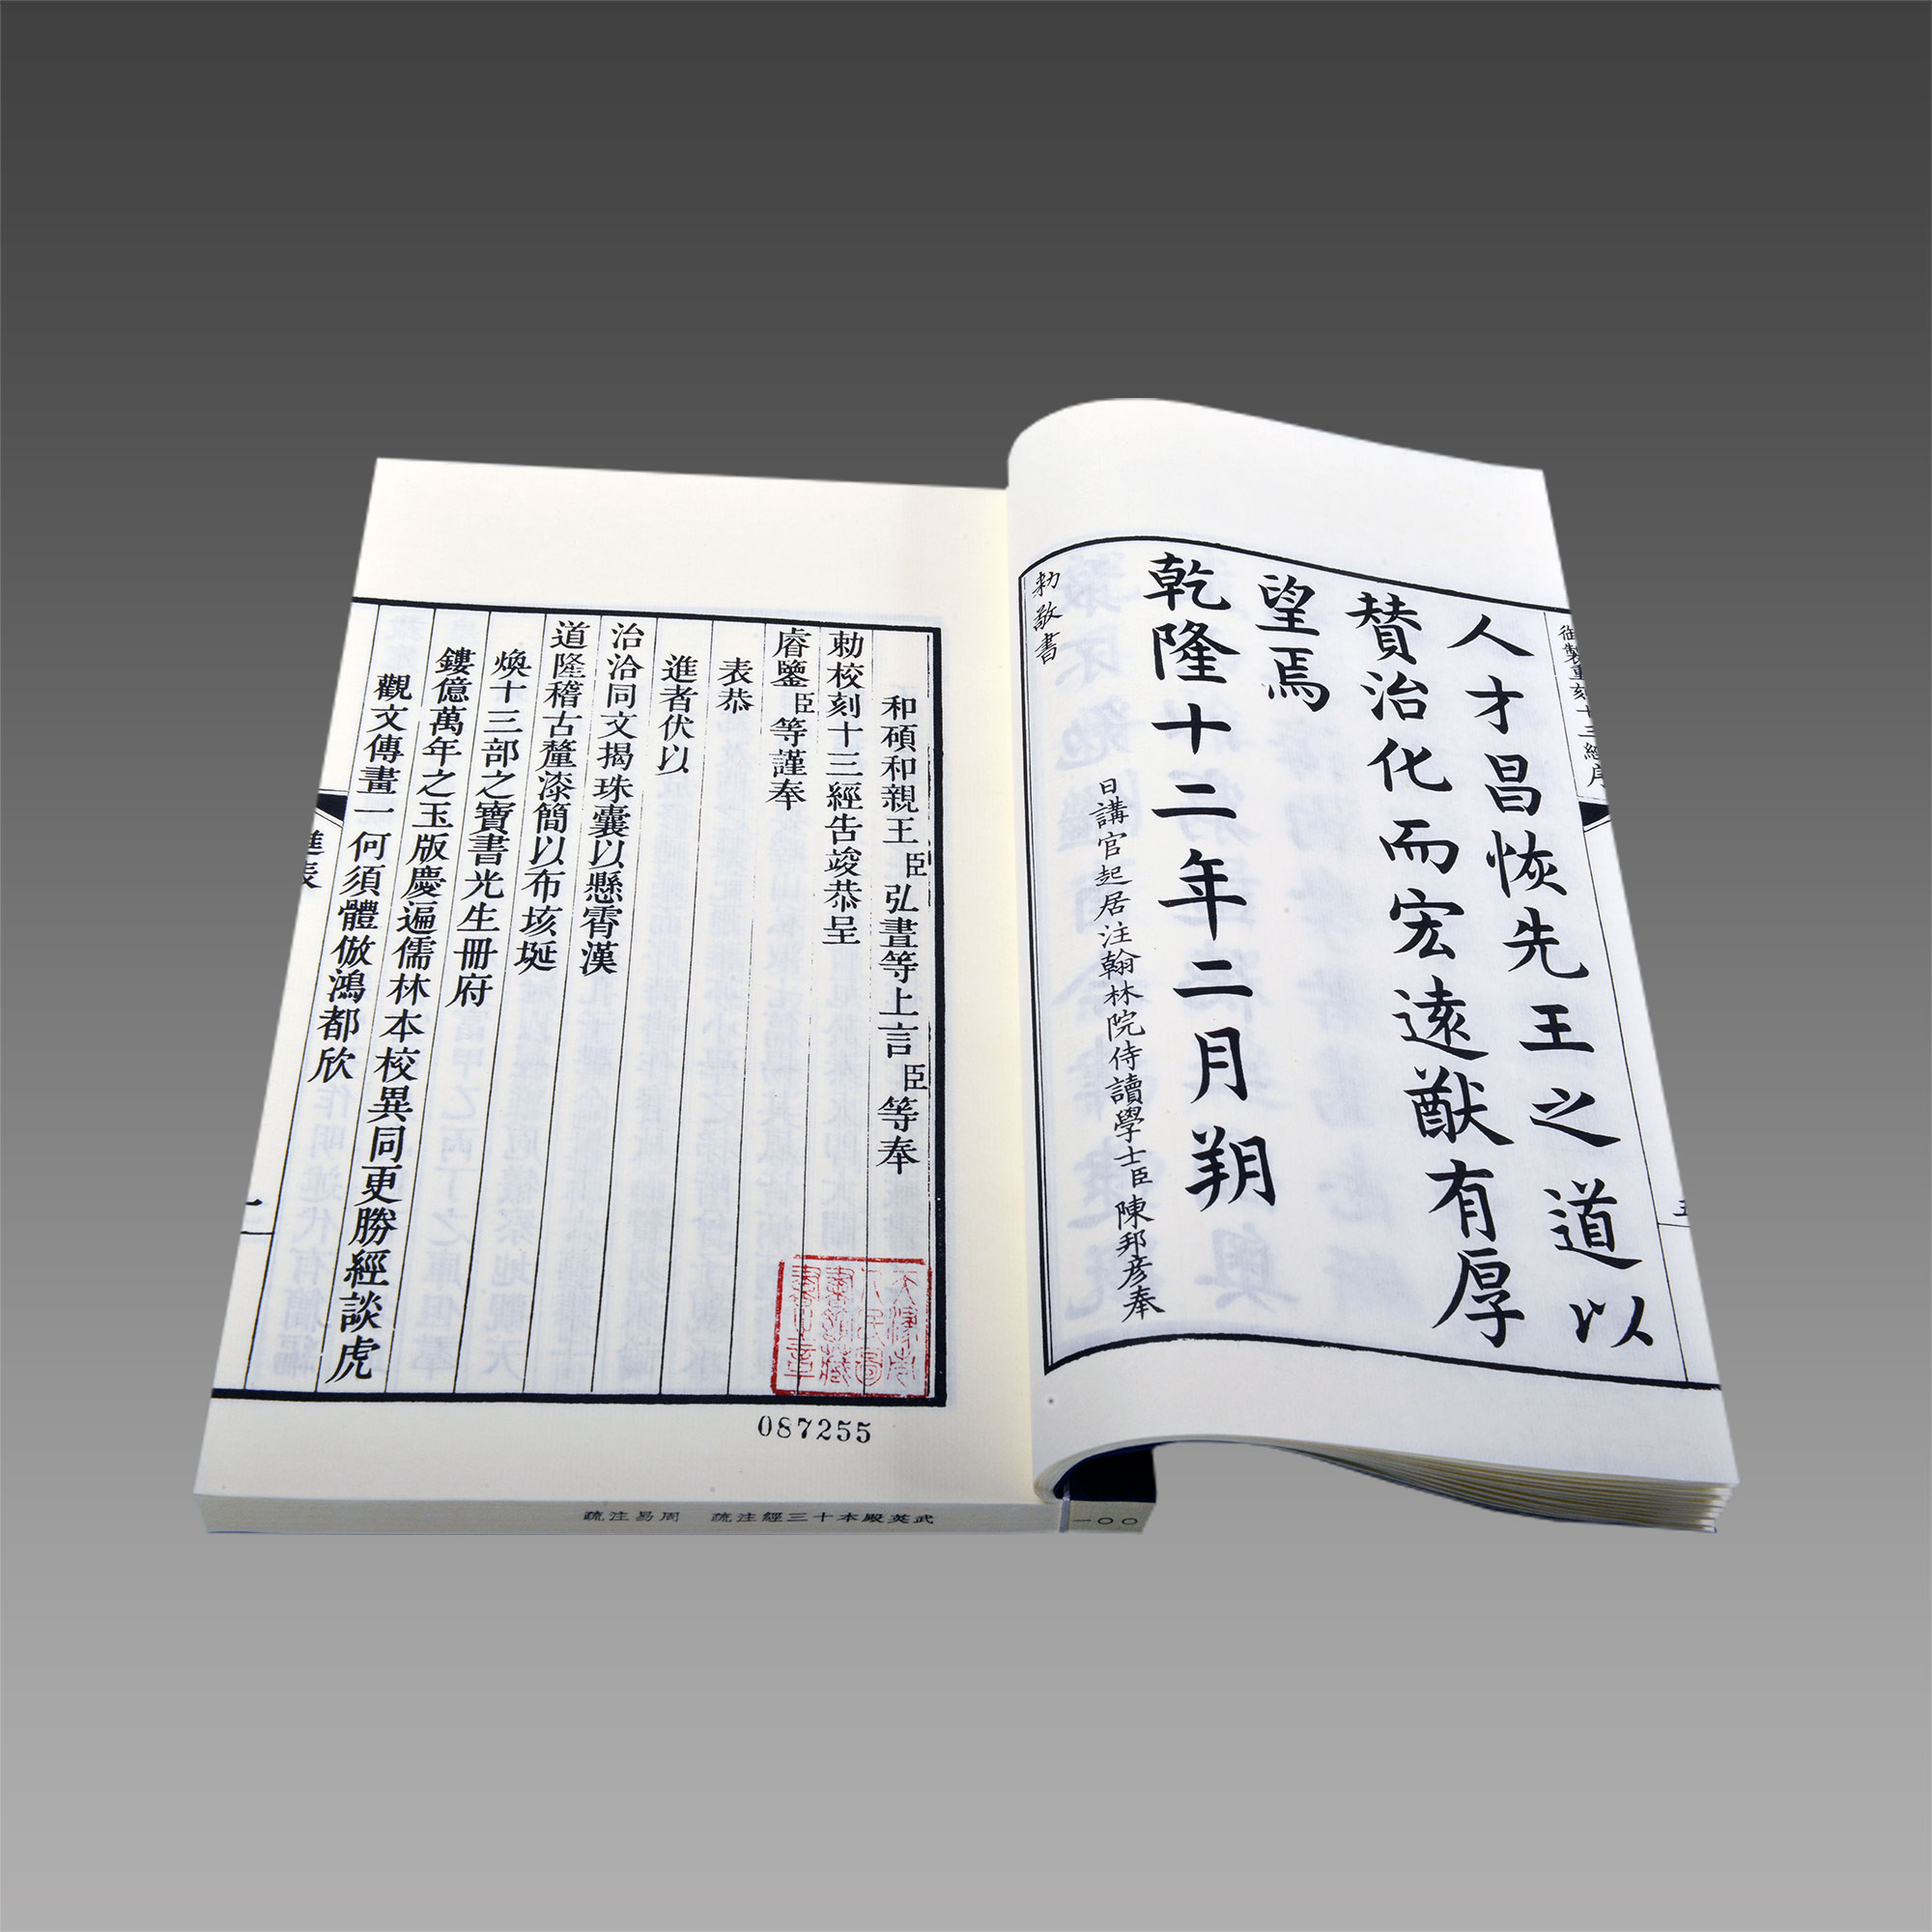 御製重刻十三經序
人才昌恢先王之道以
贊治化而宏遠猷有厚
望焉
乾隆十二年二月朔
日講官起居注翰林院侍讀學士臣陳邦彥奉
勅敬書
和碩和親王臣弘晝等上言臣等奉
勅校刻十三經告竣恭呈
睿鑒臣等謹奉
表恭
進者伏以
治洽同文揭珠囊以懸霄漢
道隆稽古釐漆簡以布垓埏
煥十三部之寶書光生冊府
鏤億萬年之玉版慶遍儒林本校異同更勝經談虎
觀文傳畫一何須體倣鴻都欣
進表
一
天津市人民圖書館藏書之章
087255
武英殿本十三經注疏 周易注疏
一〇〇